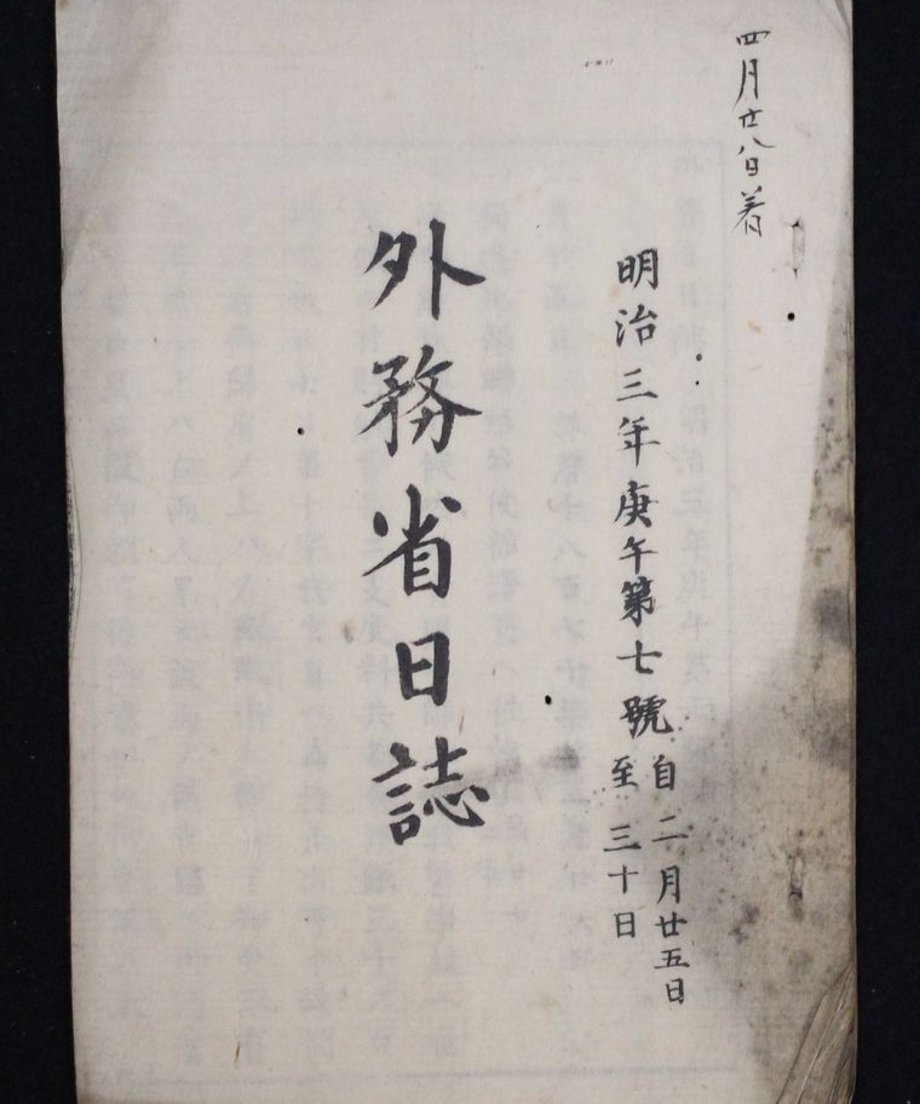 四月廿八日着
明治三年庚午第七號
自二月廿五日
至三十日
外務省日誌